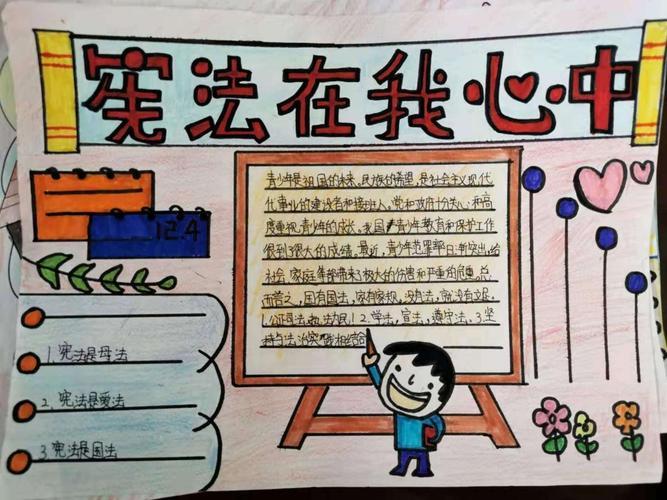 宪法在我心中
青少年是祖国的未来、民族的希望，是社会主义现代
代事业的建设者和接班人。党和政府十分关心和高
度重视青少年的成长。我国青少年教育和保护工作
得到了很大的成绩。最近，青少年犯罪日新突出，给
社会、家庭等都带来了极大的伤害和严重的危害。总
而言之，国有国法，家有家规，没有法，就没有
1.公正司法，执法为民！2.学法，宣法，遵守法。3.坚
持与法治实践相结合
12.4
1.宪法是母法
2.宪法是爱法
3.宪法是国法